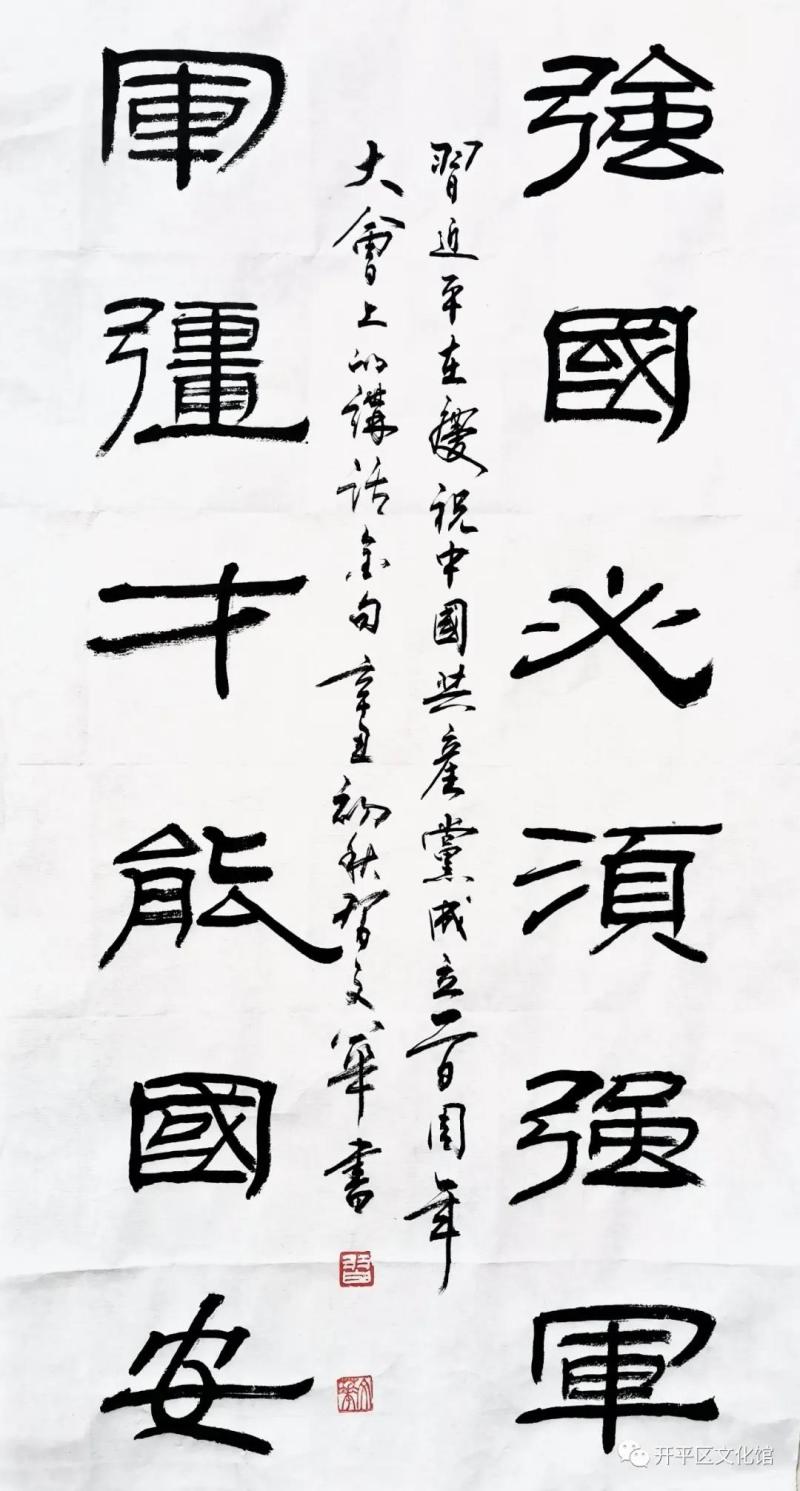 強國必須强軍
軍彊才能國安
習近平在慶祝中國共產黨成立一百周年
大會上的講话金句 辛丑初秋智文华書
开平区文化馆